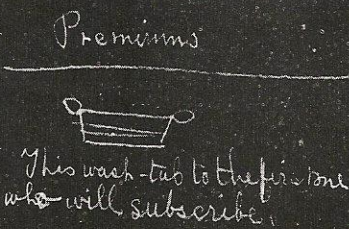 Premiums
This wash-tub to the first one
who will subscribe.